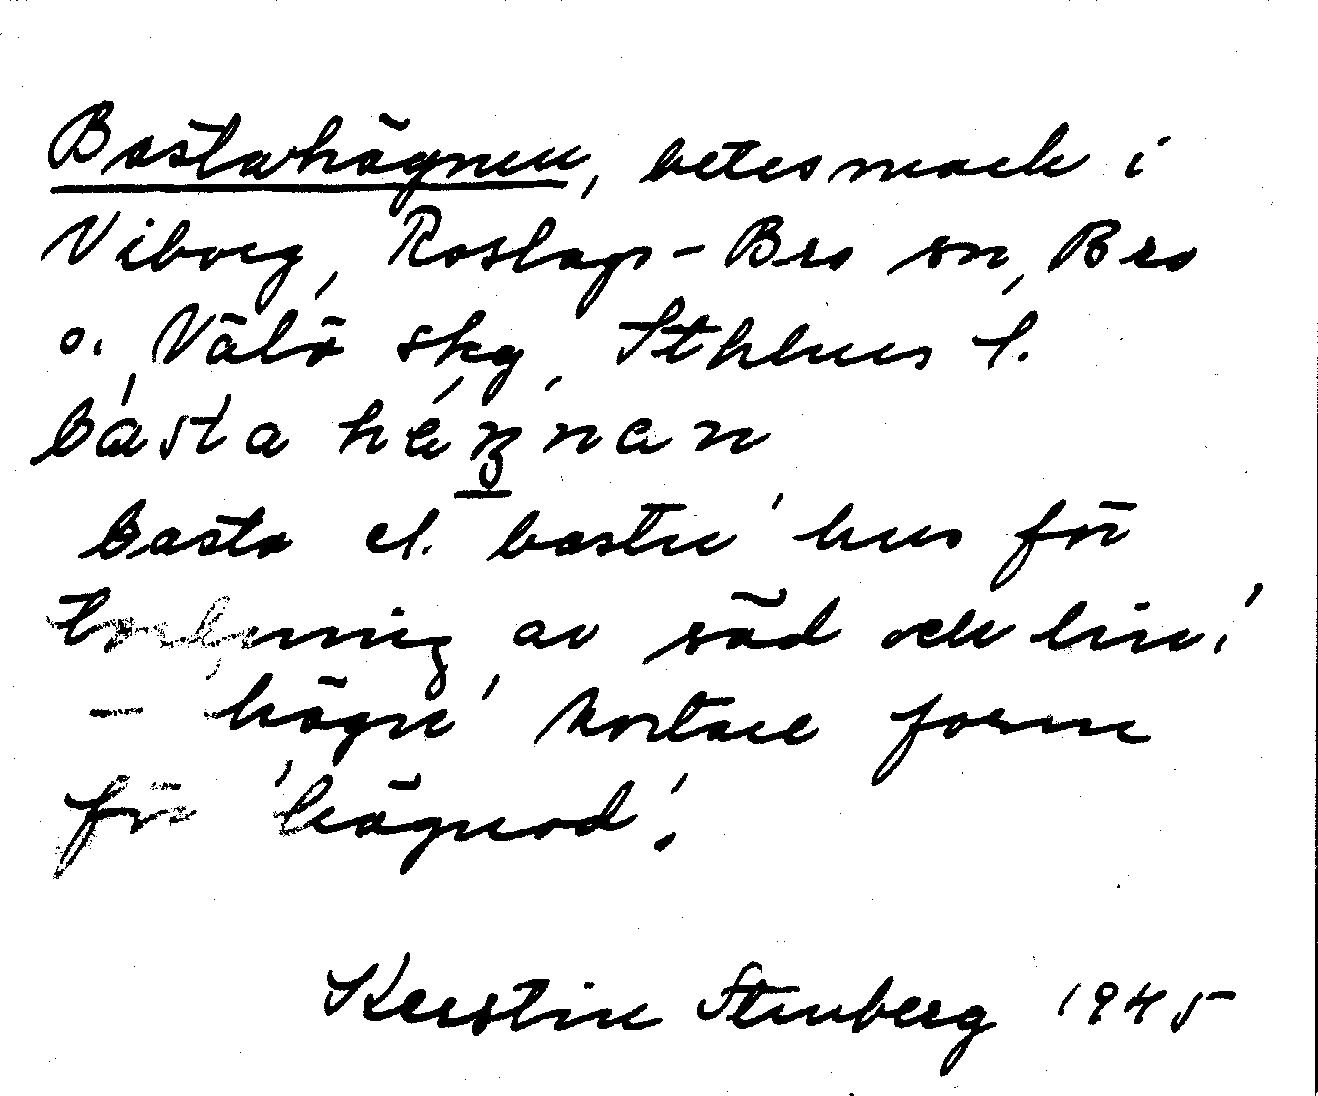 Bastahägnen, betesmark i
Viborg, Roslags-Bro sn, Bro
o. Vätö skg, Sthlms l.
básta héŋnan
basta el. bastu 'hus för
torkning av säd och lin.'
- hägn' kortare form
för 'hägnad'.
Kerstin Stenberg 1945